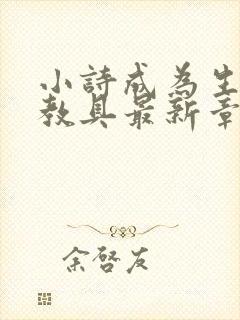 小詩成為生
教具最新章
余啓友